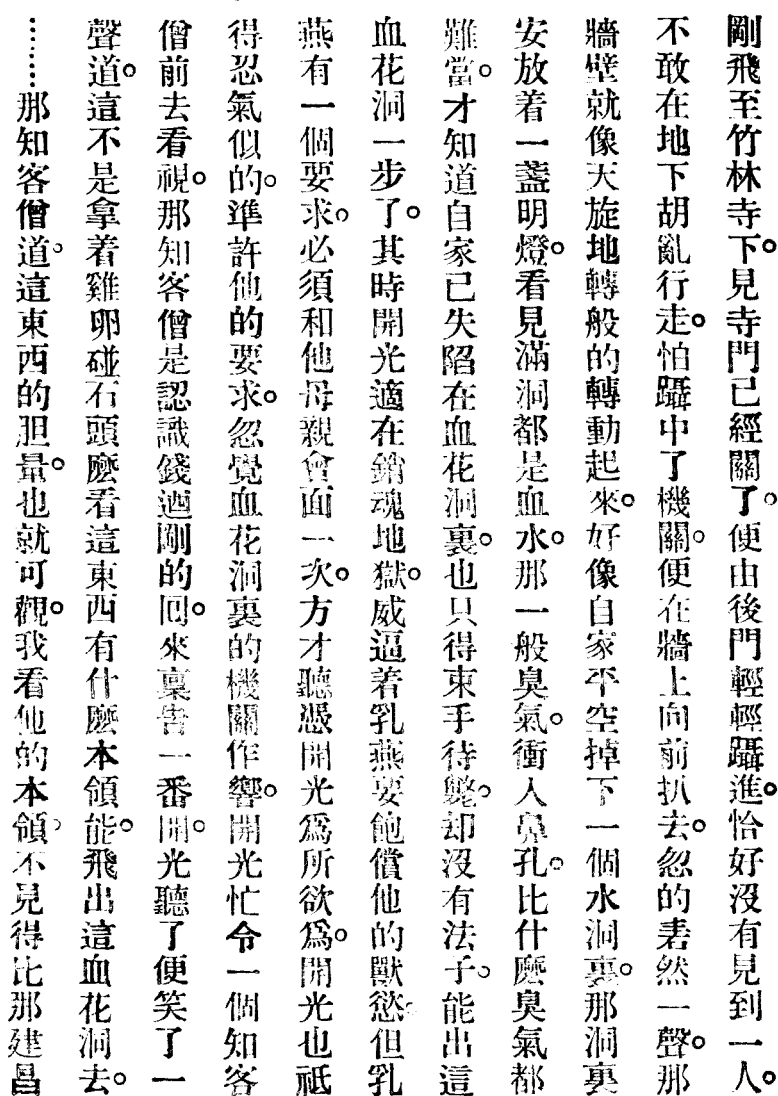 剛飛至竹林寺下。見寺門已經關了。便由後門輕輕躡進。恰好沒有見到一人。
不敢在地下胡亂行走。怕躡中了機關。便在牆上向前扒去。忽的砉然一聲。那
牆壁就像天旋地轉般的轉動起來。好像自家平空掉下一個水洞裏。那洞裏
安放着一盞明燈。看見滿洞都是血水。那一般臭氣。衝人鼻孔。比什麼臭氣都
難當。才知道自家已失陷在血花洞裏。也只得束手待斃。却沒有法子。能出這
血花洞一步了。其時開光適在銷魂地獄。威逼着乳燕要飽償他的獸慾。但乳
燕有一個要求。必須和他母親會面一次。方才聽憑開光爲所欲爲。開光也祗
得忍氣似的。準許他的要求。忽覺血花洞裏的機關作響。開光忙令一個知客
僧前去看視。那知客僧是認識錢迺剛的。回來稟告一番。開光聽了便笑了一
聲道。這不是拿着雞卵碰石頭麼看這東西有什麼本領能。飛出這血花洞去。
……那知客僧道。這東西的胆量。也就可觀。我看他的本領。不見得比那建昌